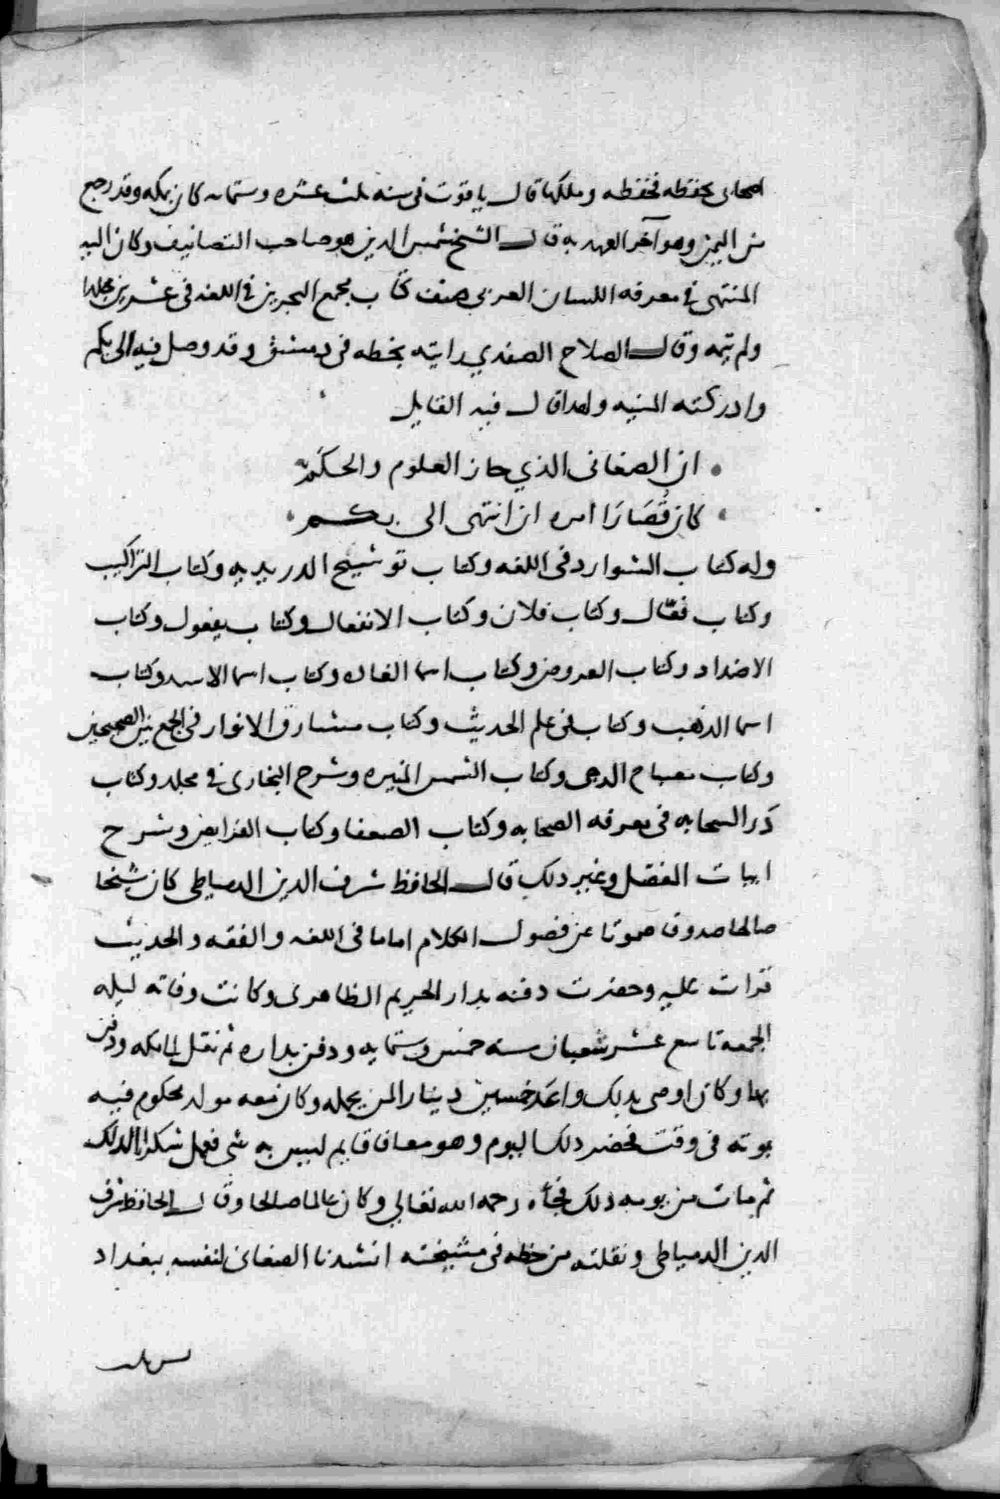 اصحابى بحفظه فحفظه وملكها قال ياقوت فى سنه ثلث عشره وستمايه كان بمكه وقد رجع
من اليمن وهو آخر العهد به قال الشيخ شمس الدين هو صاحب التصانيف وكان اليه
المنتهى فى معرفه اللسان العربى صنف كتاب مجمع البحرين فى اللغه فى عشرين مجلدا
ولم يتمه وقال الصلاح الصفدي رايته بخطه فى دمشق وقد وصل فيه الى بكم
وادركته المنيه ولهذا قال فيه القايل
ان الصغانى الذي حاز العلوم والحكم
كان قُصَارَا امره ان انتهى الى بكم
وله كتاب الشوارد فى اللغه وكتاب توشيح الدريديه وكتاب التراكيب
وكتاب فعّال وكتاب فعلان وكتاب الانفعال وكتاب يفعول وكتاب
الاضداد وكتاب العروض وكتاب اسما الغاده وكتاب اسما الاسد وكتاب
اسما الذهب وكتاب فى علم الحديث وكتاب مشارق الانوار فى الجمع بين الصحيحين
وكتاب مصباح الدجى وكتاب الشمس المنيره وشرح البخارى فى مجلد وكتاب
دَر السحابه فى معرفه الصحابه وكتاب الضعفا وكتاب الفرايض وشرح
ابيات المفصل وغير ذلك قال الحافظ شرف الدين الدمياطى كان شيخا
صالحا صدوقا صموتا عن فضول الكلام اماما فى اللغه والفقه والحديث
قرات عليه وحضرت دفنه بدار الحريم الظاهرى وكانت وفاته ليله
الجمعه تاسع عشر شعبان سنه خمس وستمايه ودفن بداره ثم نقل الى مكه ودفن
بها وكان اوصى بذلك واعَد خمسين دينارا لمن يحمله وكان معه مولد محكوم فيه
بموته فى وقت فحضر ذلك اليوم وهو معافا قايم ليس به شى فعمل شكرانا لذلك
ثم مات من يومه ذلك فجأه رحمه الله تعالى وكان عالما صالحا وقال الحافظ شرف
الدين الدمياطى ونقلته من خطه فى مشيخته انشدنا الصغانى لنفسه ببغداد